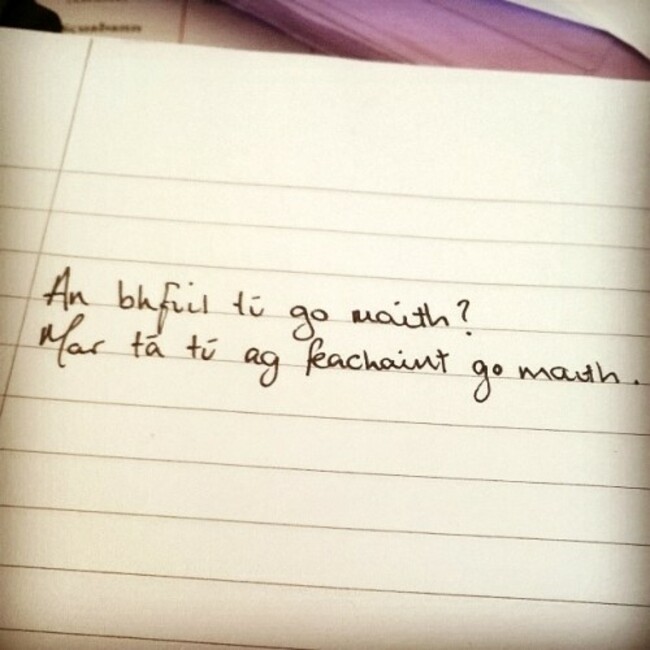 An bhfuil tú go maith?
Mar tá tú ag feachaint go maith.